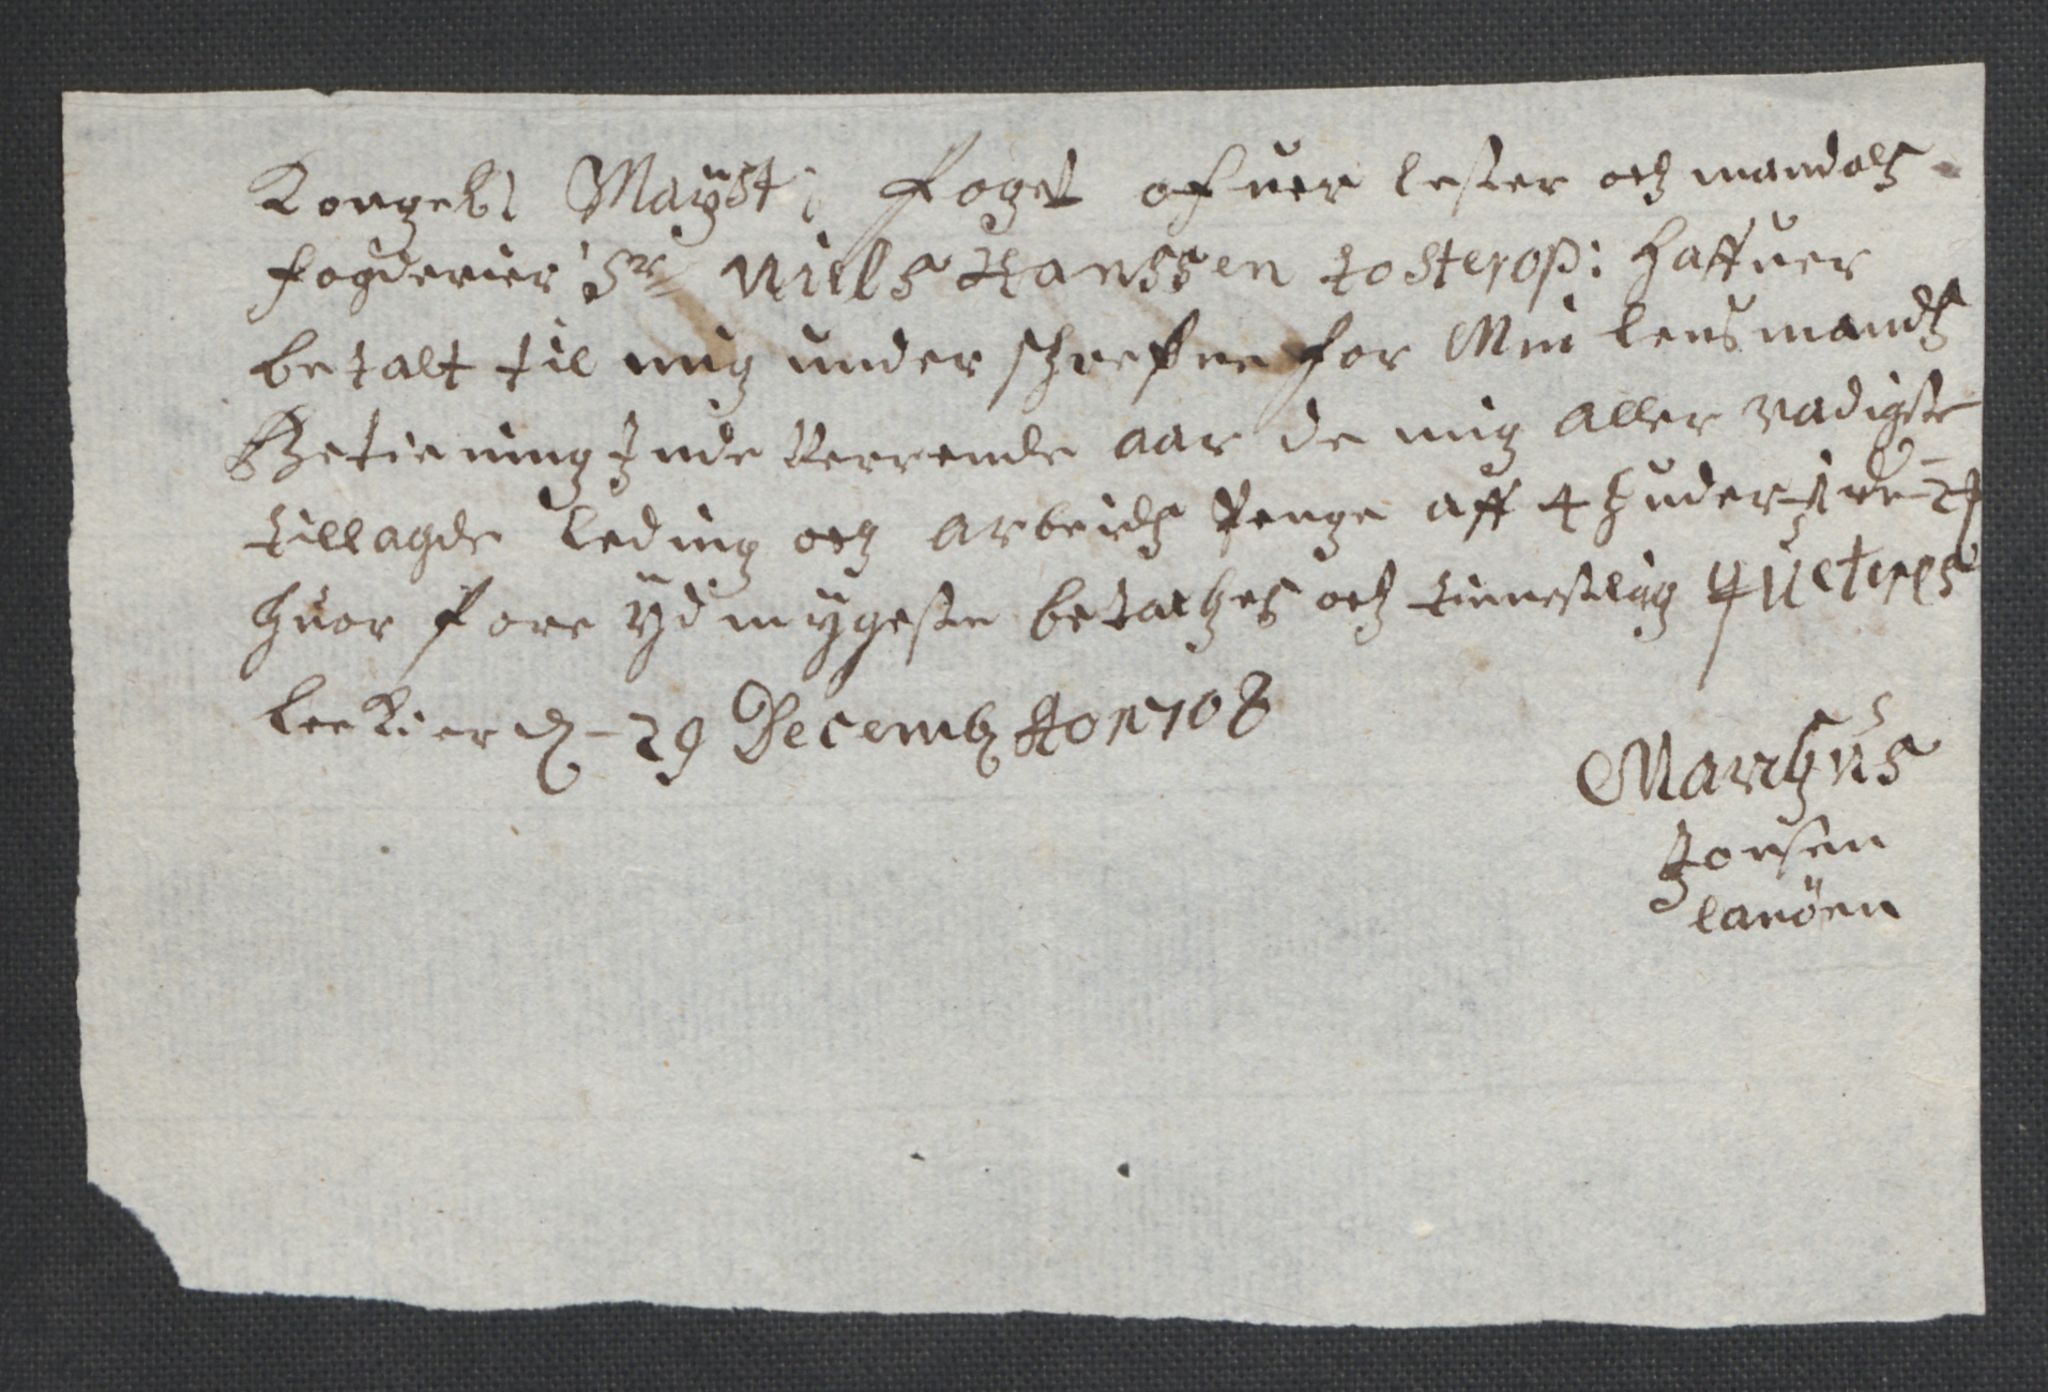 Kongel: Mayst: foget ofuer lester och mandals
fogderier Sr Niels Hanssen tosterop: haffuer
betalt til mig under schrefne for Min lensmands
Betiening Jnde verrende aar de mig aller nadigste
tillagde leding och arbeids penge aff 4 huder
huor fore ydmygeste betaches och tienestlig qveteres
d 29 Decemb Ao 1708
Marchus
Jonsen
lanöen